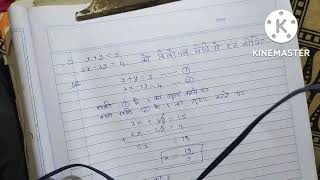 x + y = 5
2x - 3y = 4 को विलोपन विधि से हल कीजिए
KINEMASTER
x + y = 5 — ①
2x - 3y = 4 — ②
समी ① में 3 का गुणा करने पर
समी ② में 1 का गुणा करने पर
3x + 3y = 15
+ 2x - 3y = 4
5x = 19
x = 19/5